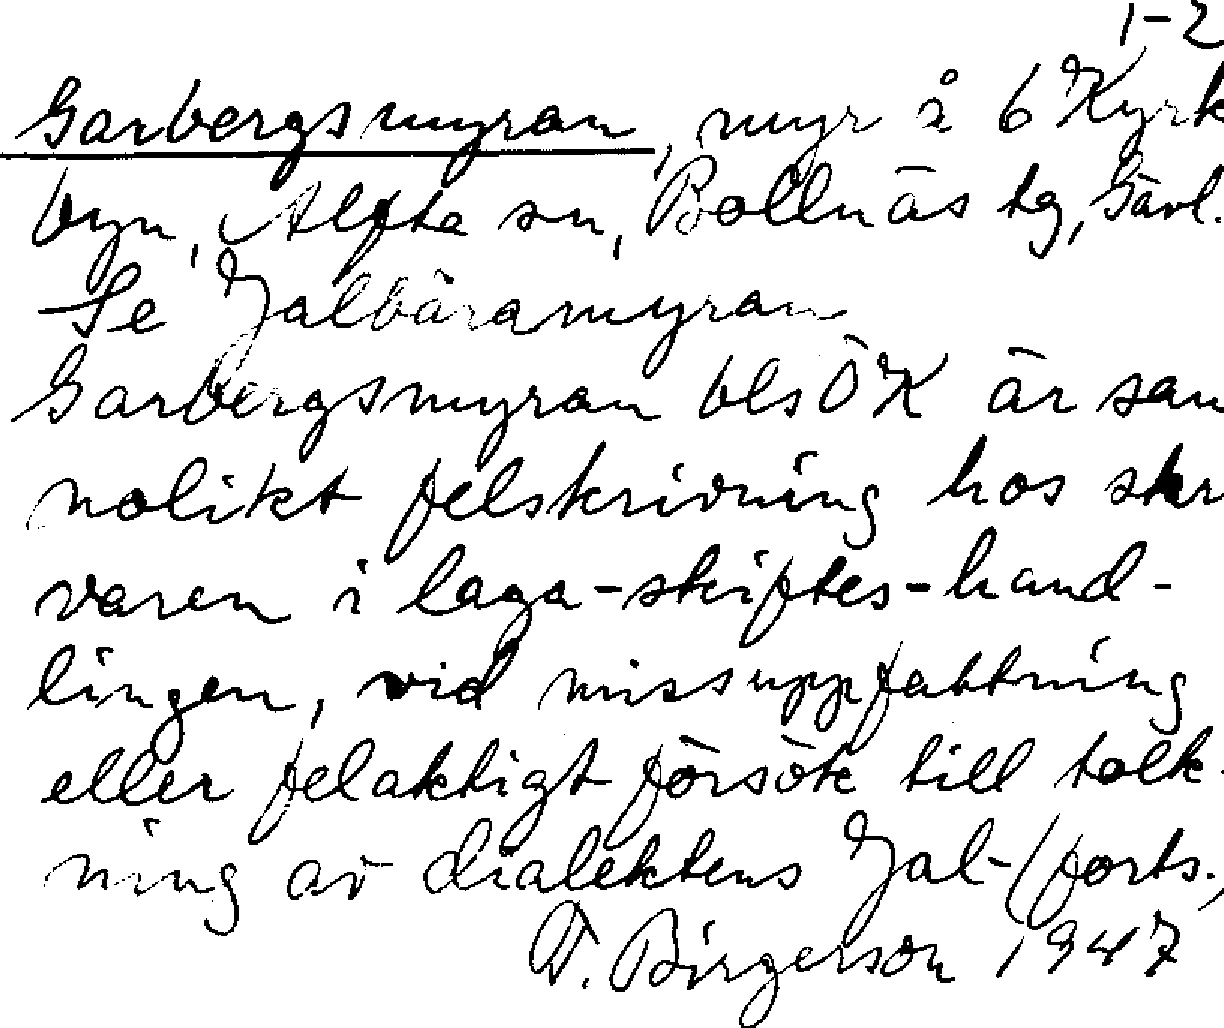 1-2
Garbergsmyran, myr å 6 Kyrk
byn, Alfta sn, Bollnäs tg, Gävl.
Se Jalbäramyran
Garbergsmyran bls ÖK är san
nolikt felskrivning hos skr
varen i laga-skiftes-hand-
lingen, vid missuppfattning
eller felaktigt försök till tolk-
ning av dialektens Jal- (forts.)
T. Birgerson 1947